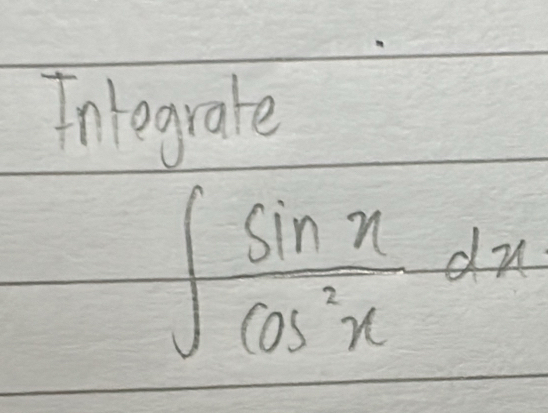 Integrate
∫ sin x / cos²x dx